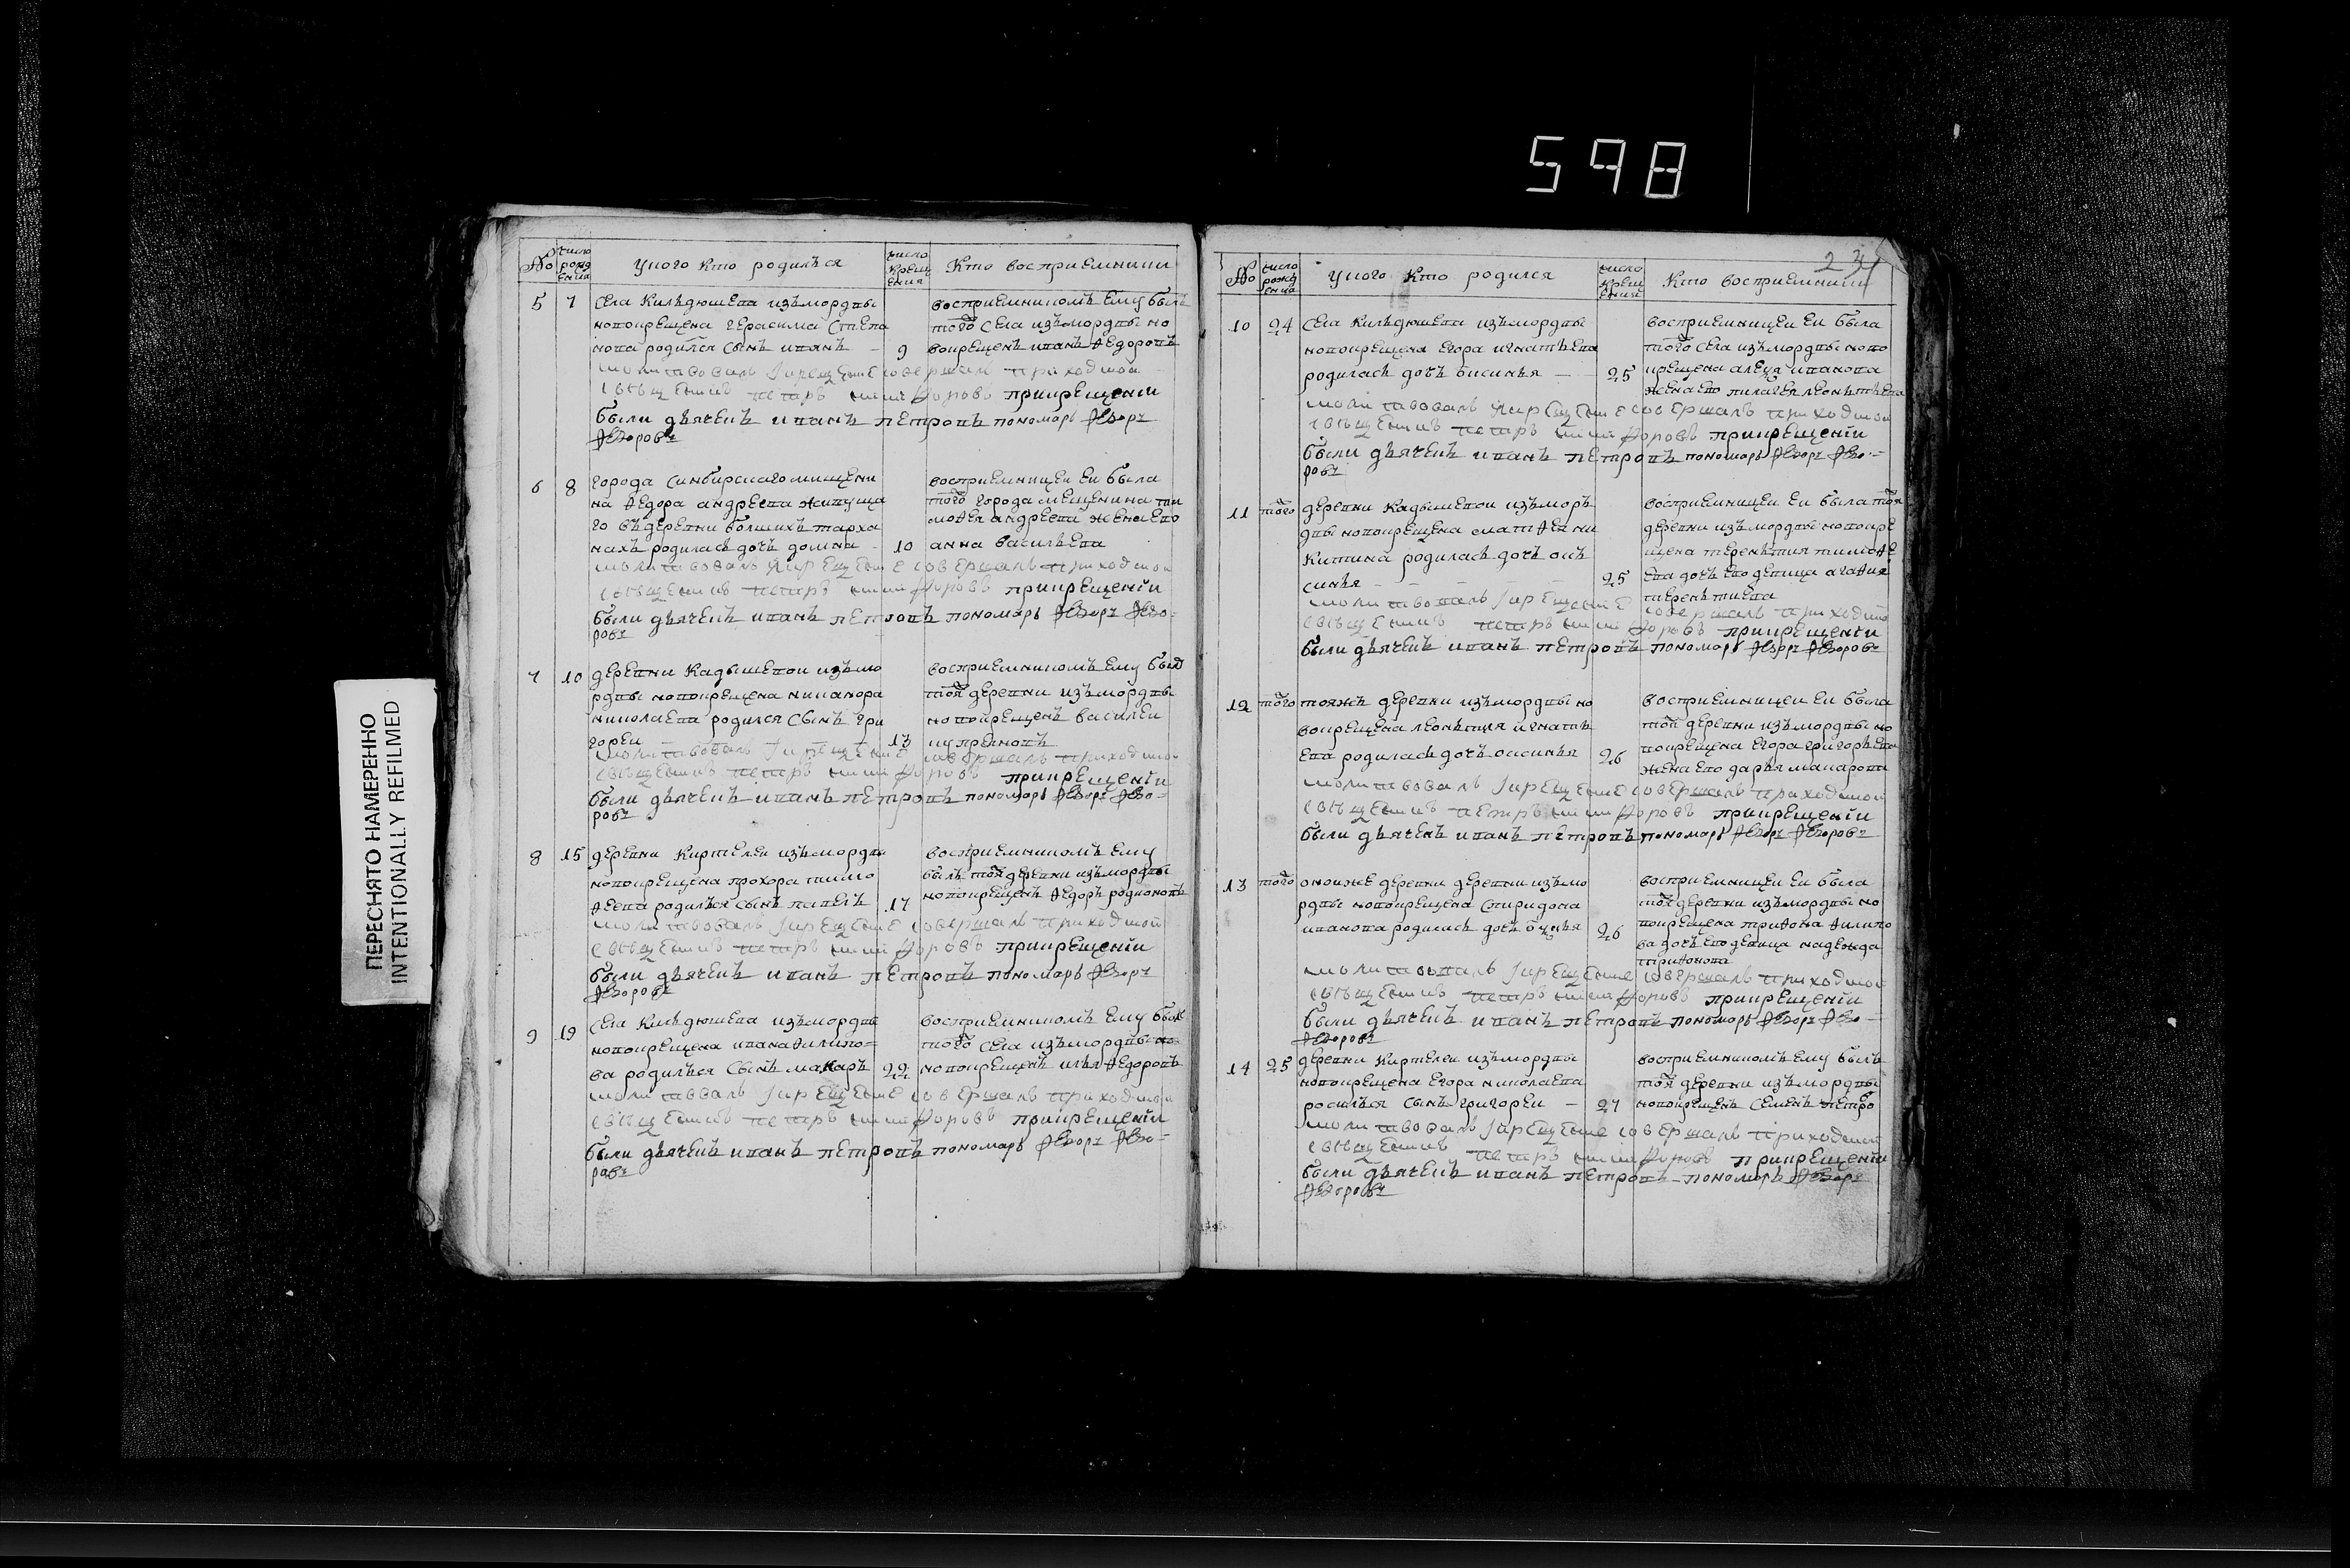 598
ПЕРЕСНЯТО НАМЕРЕННО
INTENTIONALLY REFILMED
№
число рожд ения
У кого кто родился
число крещ ения
Кто восприемники
5 7 Села Кильдюшева изъмордвы
новокрещена Герасима Степа
нова родился сынъ иванъ 9
молитвовалъ и крещение совершалъ приходской
священникъ петръ никифоровъ прикрещении
были дьячекъ иванъ петровъ пономарь Ѳедоръ
Ѳедоровъ
восприемникомъ ему былъ
того села изъмордвы но
вокрещенъ иванъ Ѳедоровъ
6 8 города Синбирскаго мищени
на Ѳедора андреева живуща
го въдеревни болшихъ тарха
нахъ родилась дочь домна 10
молитвовалъ и крещение совершалъ приходской
священникъ петръ никифоровъ прикрещении
были дьячекъ иванъ петровъ пономарь Ѳедоръ Ѳедо=
ровъ
восприемницеи еи была
того города мещенина тим
моѲея андреева жена его
анна васильева
7 10 деревни Кадышевои изъмо
рдвы новокрещена никанора
николаева родился сынъ гри
гореи 13
молитвовалъ и крещение совершалъ приходской
священникъ петръ никифоровъ прикрещении
были дьячекъ иванъ петровъ пономарь Ѳедоръ Ѳедо=
ровъ
восприемникомъ ему былъ
тоя деревни изъмордвы
новокрещенъ василеи
8 15 деревни Киртелеи изъмордвы
новокрещена прохора тимо
Ѳеева родилъся сынъ павелъ 17
молитвовалъ и крещение совершалъ приходской
священникъ петръ никифоровъ прикрещении
были дьячекъ иванъ петровъ пономарь Ѳедоръ
Ѳедоровъ
восприемникомъ ему
былъ тоя деревни изъмордвы
новокрещенъ Ѳедоръ родионовъ
9 19 Села Кильдюшева изъмордвы
новокрещена ивана Ѳилипо=
ва родилъся сынъ макаръ 22
молитвовалъ и крещение совершалъ приходской
священникъ петръ никифоровъ прикрещении
были дьячекъ иванъ петровъ пономарь Ѳедоръ Ѳедо=
ровъ
восприемникомъ ему былъ
того села изъмордвы но
новокрещенъ илья Ѳедоровъ
234
№
число рожд ения
У кого кто родился
число крещ ения
Кто восприемники
10 24 Села Кильдюшева изъмордвы
новокрещена Егора игнатьева
родилась дочь ѡксинья 25
молитвовалъ и крещение совершалъ приходской
священникъ петръ никифоровъ прикрещении
были дьячекъ иванъ петровъ пономарь Ѳедоръ Ѳедо=
ровъ
восприемницеи еи была
того села изъмордвы ново
крещена иванова
жена его пилагея леонтьева
11 того деревни Кадышевои изъмор
двы новокрещена матѲея ни
китина родилась дочь окъ
синья 25
молитвовалъ и крещение совершалъ приходской
священникъ петръ никифоровъ прикрещении
были дьячекъ иванъ петровъ пономарь Ѳедоръ Ѳедоровъ
восприемницеи еи была тоя
деревни изъмордвы новокре
щена терентия тимоѲе
ева дочь его девица агаѲия
терентиева
12 того тояжъ деревни изъмордвы но
вокрещена леонътия игнать
ева родилась дочь оксинья 26
молитвовалъ и крещение совершалъ приходской
священникъ петръ никифоровъ прикрещении
были дьячекъ иванъ петровъ пономарь Ѳедоръ Ѳедоровъ
восприемницеи еи была
тои деревни изъмордвы но
вокрещена Егора григорьева
жена его дарья макарова
13 того оноиже деревни деревни изъмо
рдвы новокрещена Спиридона
иванова родилась дочь 26
молитвовалъ и крещение совершалъ приходской
священникъ петръ никифоровъ прикрещении
были дьячекъ иванъ петровъ пономарь Ѳедоръ Ѳедо=
Ѳедоровъ
восприемницеи еи была
тоя деревни изъмордвы но
вокрещена триѲона Ѳилипо
ва дочь его девица надежда
триѲонова
14 25 деревни Киртелеи изъмордвы
новокрещена Егора николаева
росилъся сынъ григореи 27
молитвовалъ и крещение совершалъ приходской
священникъ петръ никифоровъ прикрещении
были дьячекъ иванъ петровъ пономарь Ѳедоръ
Ѳедоровъ
восприемникомъ ему былъ
тоя деревни изъмордвы
новокрещенъ Семенъ петро